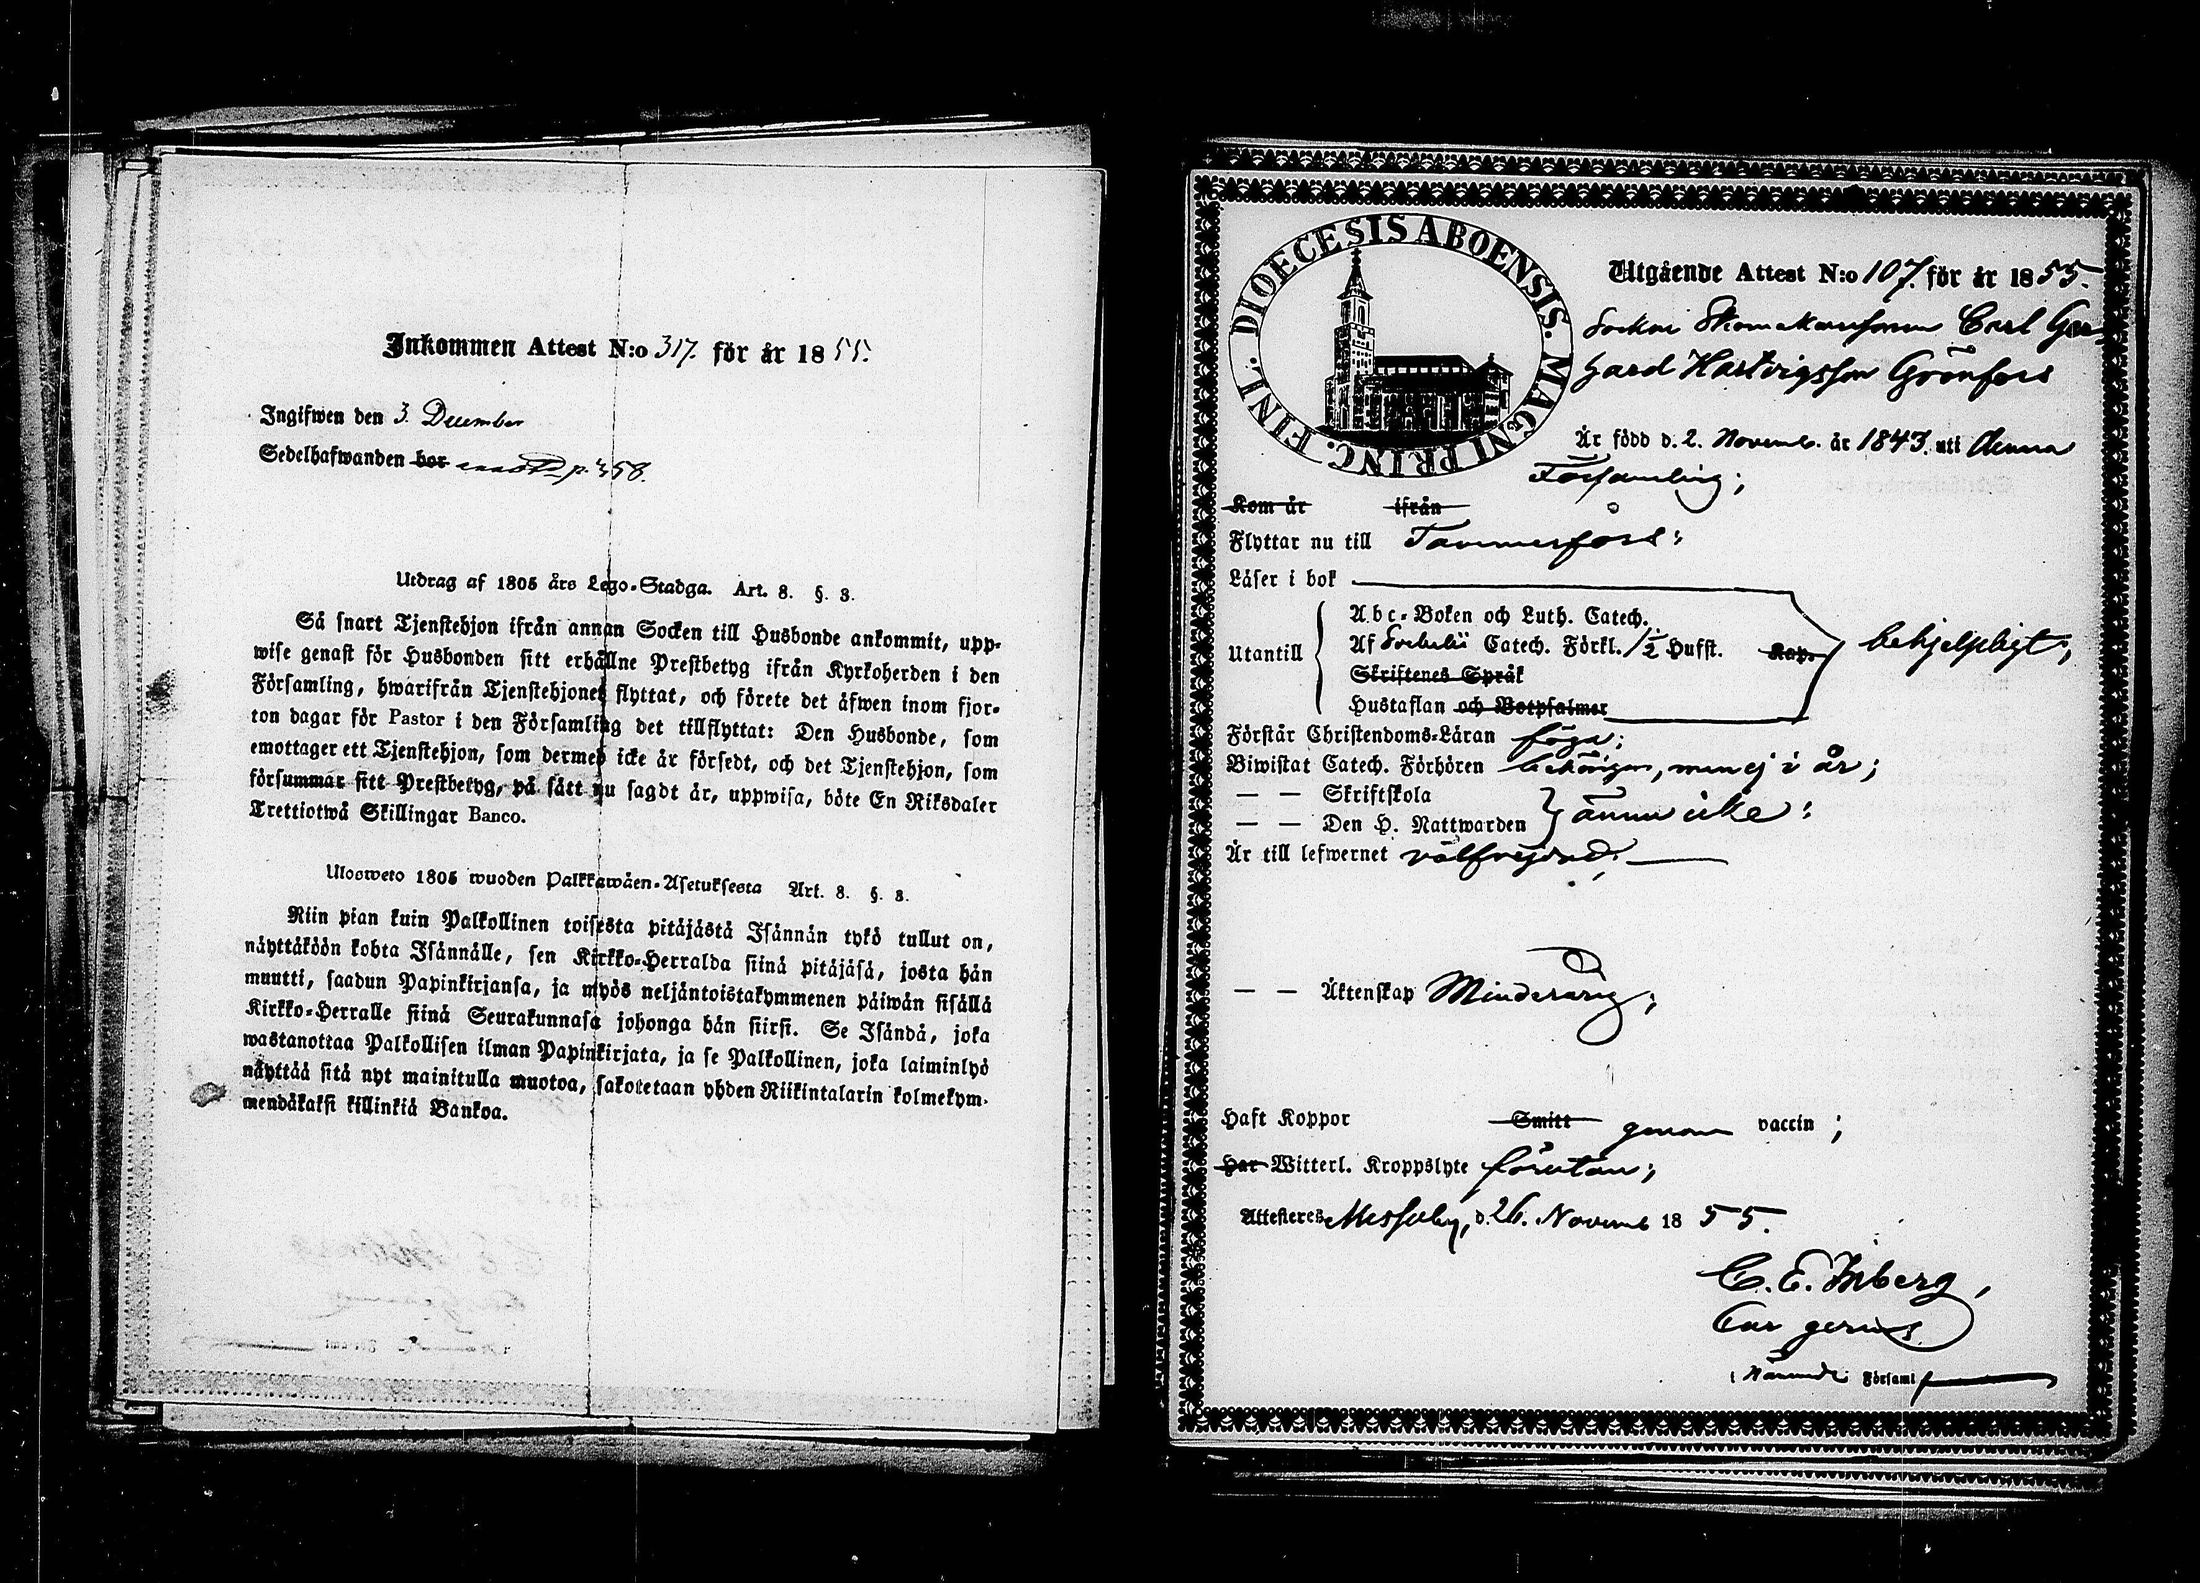 Inkommen Attest N:o 317. för år 1855.
Ingifwen den 3. December
Sedelhafwanden bor p. 458.
Utdrag af 1805 års Lego-Stadga. Art. 8. §. 3.
Så snart Tjenstehjon ifrån annan Socken till Husbonde ankommit, upp-
wise genast för Husbonden sitt erhållne Prestbetyg ifrån Kyrkoherden i den
Församling, hwarifrån Tjenstehjonet flyttat, och förete det äfwen inom fjor-
ton dagar för Pastor i den Församling det tillflyttat: Den Husbonde, som
emottager ett Tjenstehjon, som dermed icke är försedt, och det Tjenstehjon, som
försummar sitt Prestbetyg, på sätt nu sagdt är, uppwisa, böte En Riksdaler
Trettiotwå Skillingar Banco.
Ulosweto 1805 wuoden Palkkawäen-Asetuksesta Art. 8. §. 3.
Niin pian kuin Palkollinen toisesta pitäjästä Isännän tykö tullut on,
näyttäköön kohta Isännälle, sen Kirkko-Herralda siinä pitäjäsä, josta hän
muutti, saadun Papinkirjansa, ja myös neljäntoistakymmenen päiwän sisällä
Kirkko-Herralle siinä Seurakunnasa johonga hän siirsi. Se Isändä, joka
wastanottaa Palkollisen ilman Papinkirjata, ja se Palkollinen, joka laiminlyö
näyttää sitä nyt mainitulla muotoa, sakotetaan yhden Riikintalarin kolmekym-
mendäkaksi killinkiä Bankoa.
DIOECESIS ABOENSIS. MAGNI PRINC. FINL.
Utgående Attest N:o 107. för år 1855.
Socken Skomakaresonen Carl Ger-
hard Hartvigsson Grönfors
Är född d. 2. Novemb. år 1843. uti denna
Församling;
Kom år ifrån
Flyttar nu till Tammerfors:
Läser i bok
Utantill
Abc-Boken och Luth. Catech.
Af Svebelii Catech. Förkl. 1/2 Hufst. Kap. behjelpligt;
Skriftenes Språk
Hustaflan och Botpsalmer
Förstår Christendoms-Läran föga;
Biwistat Catech. Förhören behörigen, men ej i år;
— — Skriftskola
— — Den H. Nattwarden ännu icke:
Är till lefwernet välfrejdad;
— — Äktenskap Minderårig;
Haft Koppor Smitt genom vaccin;
Har Witterl. Kroppslyte förutan;
Attesteres Messuby, d. 26. Novemb 1855.
C. E. Inberg,
Cur gerens
i Församl